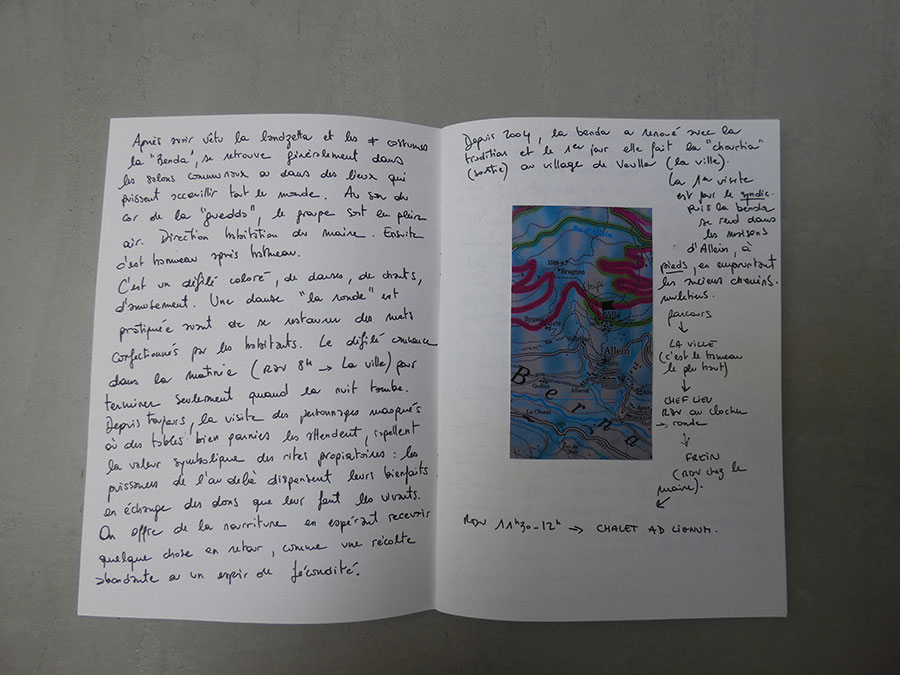 Après avoir vêtu la landzetta et les * costumes
la "Benda", se retrouve généralement dans
les salons communaux ou dans des lieux qui
puissent accueillir tout le monde. Au son du
cor de la "guedds", le groupe sort en plein
air. Direction habitation du maire. Ensuite
c'est hameau après hameau.
C'est un défilé coloré, de danses, de chants,
d'amusement. Une danse "la ronde" est
pratiquée avant de se restaurer des mets
confectionnés par les habitants. Le défilé commence
dans la matinée (RDV 8h → La ville) pour
terminer seulement quand la nuit tombe.
Depuis toujours, la visite des personnages masqués
où des tables bien garnies les attendent, rappellent
la valeur symbolique des rites propiatoires : les
puissances de l'au delà dispensent leurs bienfaits
en échange des dons que leur font les vivants.
On offre de la nourriture en espérant recevoir
quelque chose en retour, comme une récolte
abondante ou un espoir de fécondité.
Depuis 2004, la benda a renoué avec la
tradition et le 1er jour elle fait la "chourtia"
(sortie) au village de Veulla (la ville).
La 1re visite
est pour le syndic.
puis la benda
se rend dans
les maisons
d'Allein, à
pieds, en empruntant
les anciens chemins
muletiers.
parcours
↓
LA VILLE
(c'est le hameau
le plus haut)
↓
CHEF LIEU
RDV au clocher
→ ronde
↓
FREIN
(RDV chez le
maire).
RDV 11h30-12h → CHALET AD LIGNUM.
Ru d'Allein
Bragnan
Etape
Ville
Allein
Allérod
Godioz
La Chenal
Berna